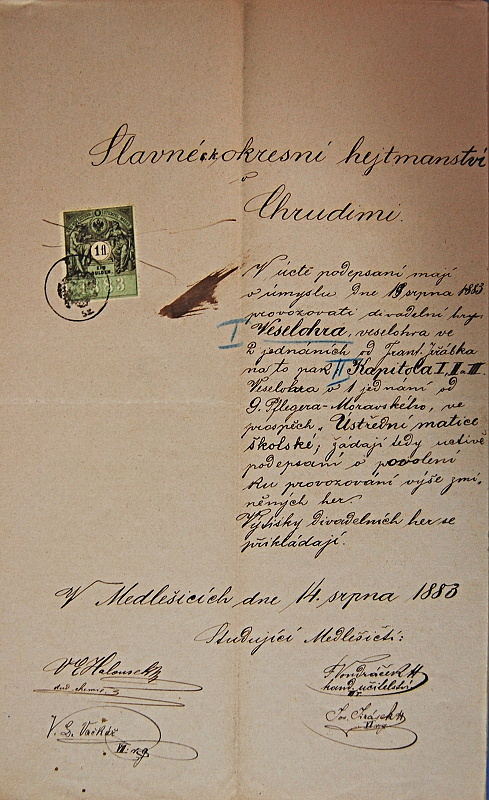 Slavné c.k. okresní hejtmanství
v
Chrudimi.
1 fl
1883
V úctě podepsaní mají
v úmyslu dne 19 srpna 1883
provozovati divadelní hry:
I Veselohra, veselohra ve
2 jednáních od Frant. Jeřábka
na to pak II Kapitola I, II a III.
Veselohra v 1 jednání od
G. Pflegera-Moravského, ve
prospěch „Ústřední matice
školské; žádají tedy uctivě
podepsaní o povolení
ku provozování výše zmí-
něných her.
Výtisky divadelních her se
přikládají.
V Medlešicích dne 14. srpna 1883
Studující Medlešičtí:
V E Halouska
stud. chemie
Vondráček H
kand. učitelství
Jos. Jirásek
VI. r. g.
V. Vacek
VII. r. g.